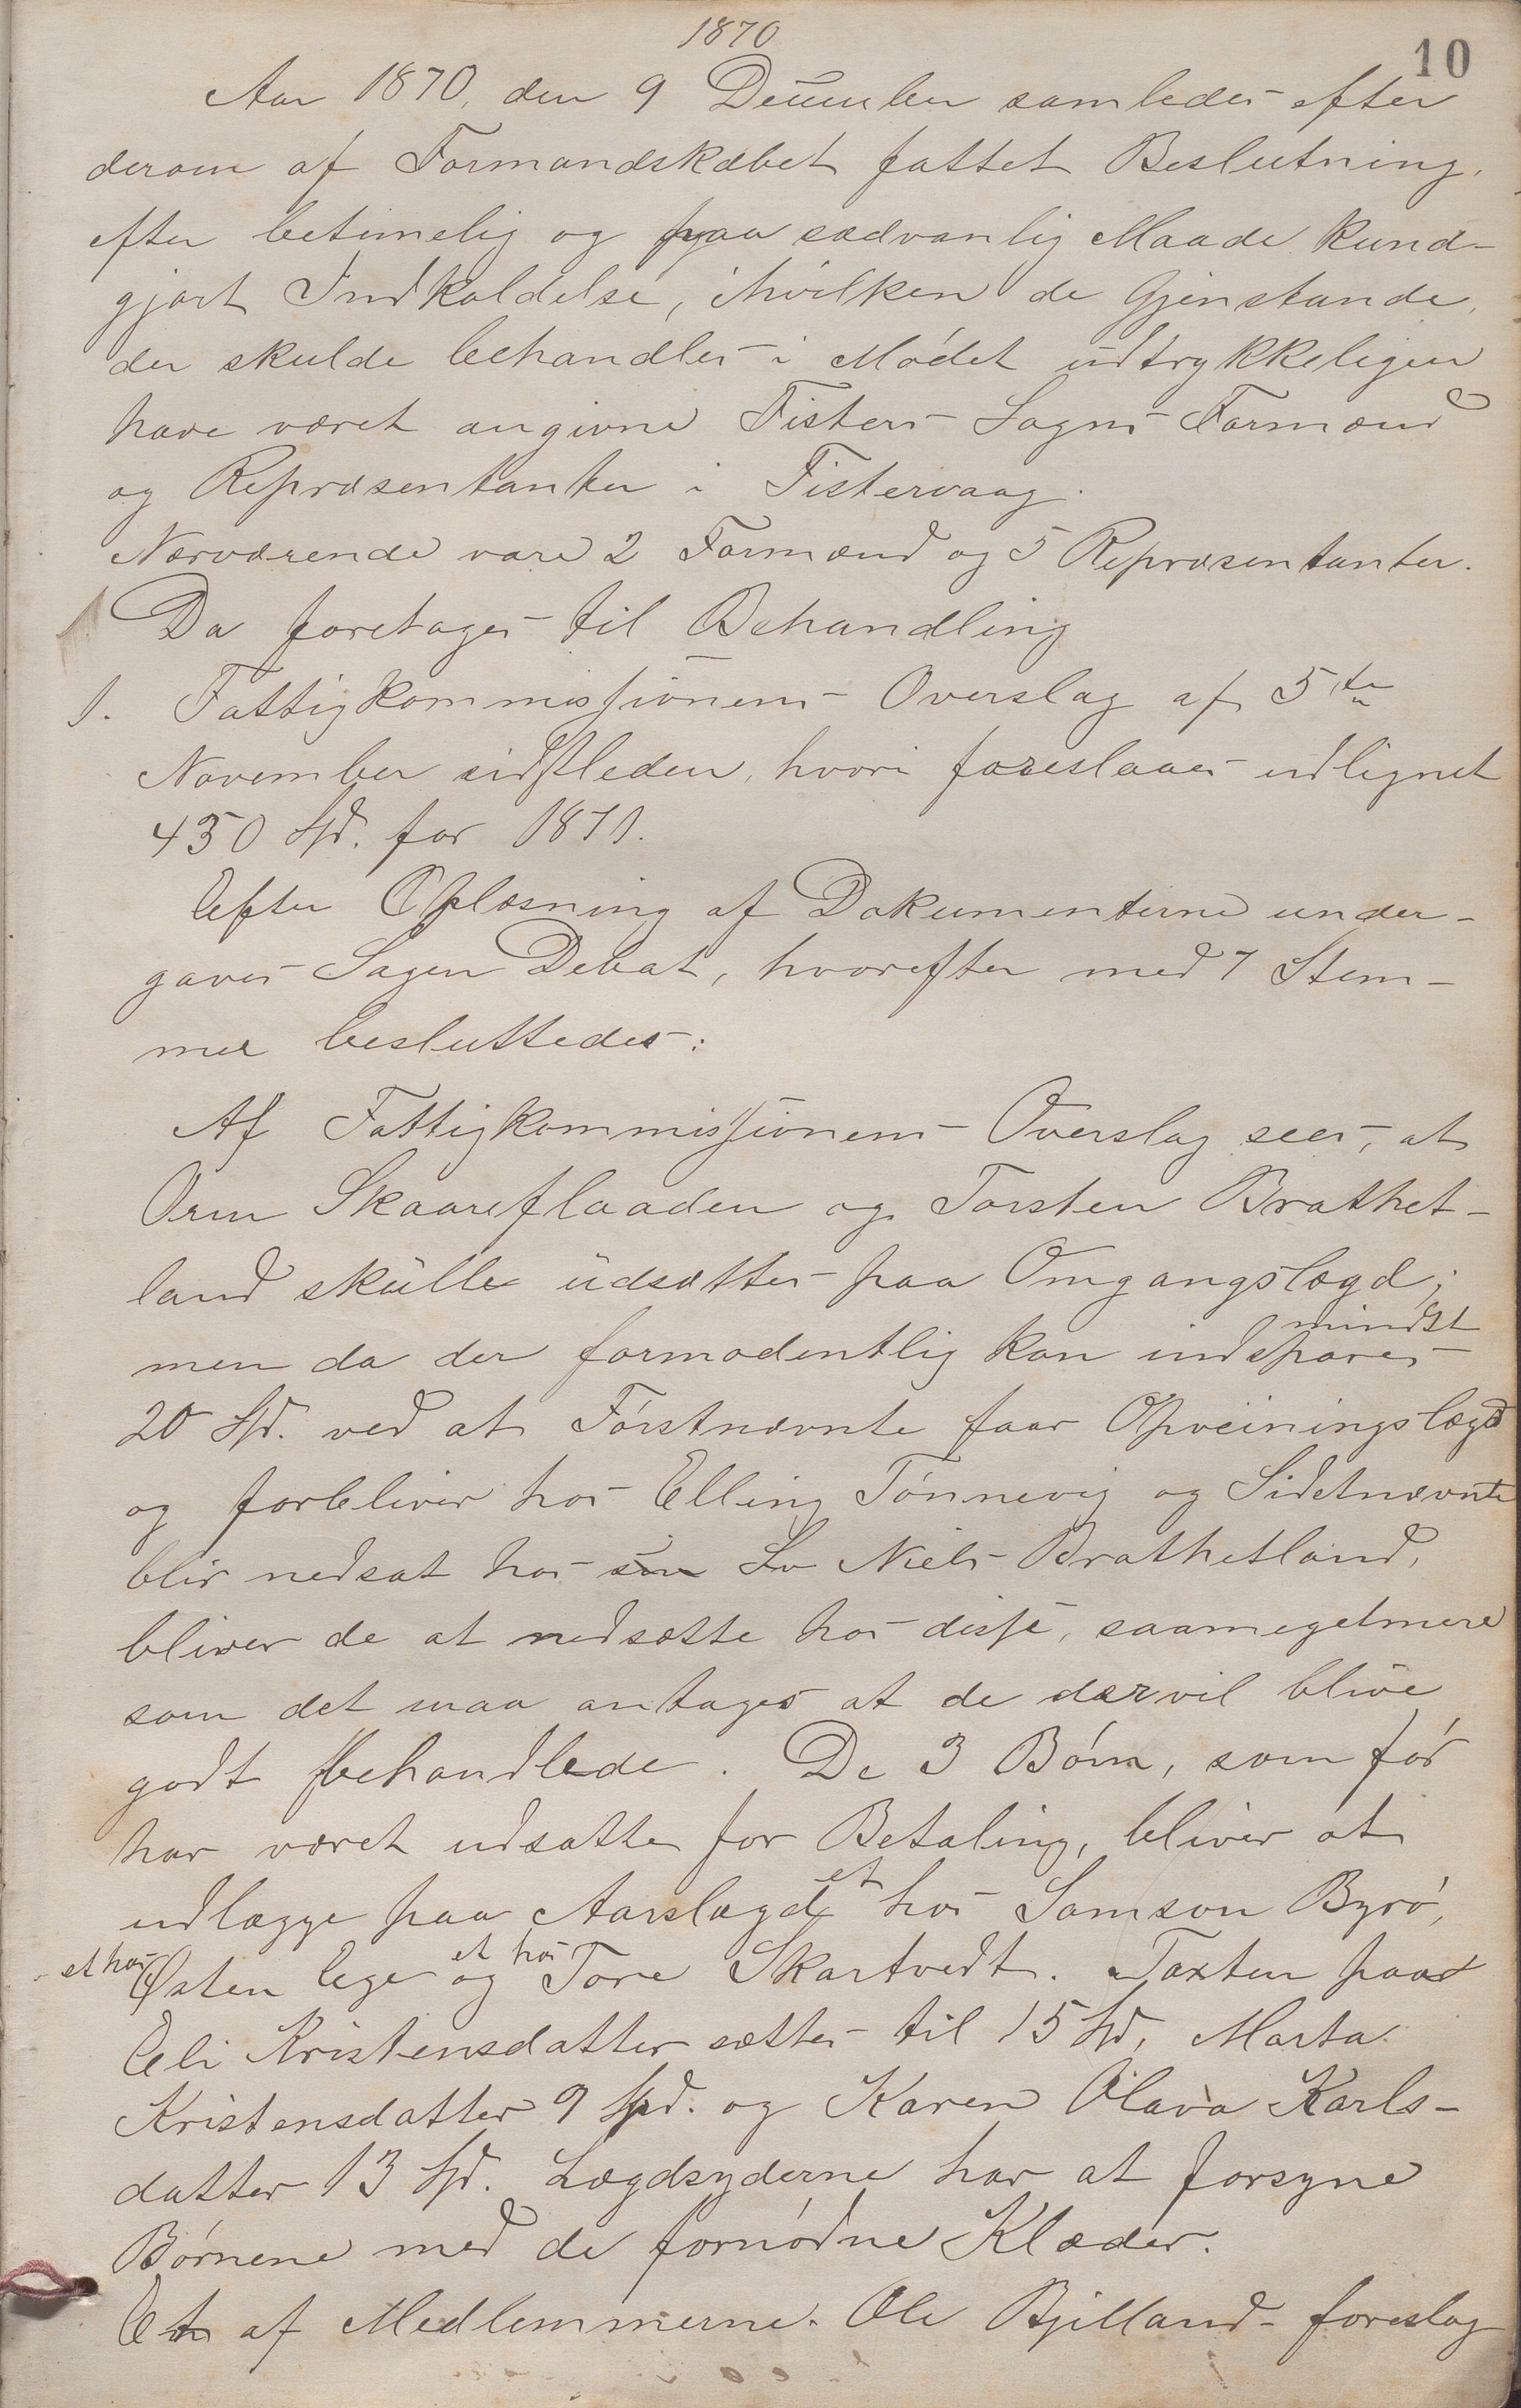 1870
10
Aar 1870, den 9 December samledes efter
derom af Formandskabet fattet Beslutning,
efter betimelig og paa sædvanlig Maade kund-
gjort Indkaldelse, ihvilken de Gjenstande,
der skulde behandles i Mødet udtrykkeligen
have været angivne Fisters Sogns Formænd
og Repræsentanter i Fistervaag.
Nærværende vare 2 Formænd og 5 Repræsentanter.
Da foretoges til Behandling
1. Fattigkommissionens Overslag af 5te
November sidstleden, hvori foreslaaes udlignet
450 Spd. for 1871.
Efter Oplæsning af Dokumenterne under-
gaves Sagen Debat, hvorefter med 7 Stem-
mer besluttedes:
Af Fattigkommissionens Overslag sees, at
Orm Skaareflaaden og Torsten Brathet-
land skulle udsættes paa Omgangslægd;
mindst
men da der formodentlig kan indspares
20 Spd. ved at Førstnævnte faar Opveiningslægd
og forbliver hos Elling Tønnevig og Sidstnævnte
blir nedsat hos sin Sø Niels Brathetland,
bliver de at nedsætte hos disse, saamegetmere
som det maa antages at de der vil blive
godt behandlede. De 3 Børn, som før
har været udsatte for Betaling, bliver at
udlægge paa Aarslægd et hos Samson Byrø,
et hos Østen Ege og et hos Tore Skartvedt. Taxten paa
Eli Kristensdatter sættes til 15 Spd, Marta
Kristensdatter 9 Spd. og Karen Olava Karls-
datter 13 Spd. Lægdsyderne har at forsyne
Børnene med de fornødne Klæder.
Et af Medlemmerne - Ole Bjilland - foreslog